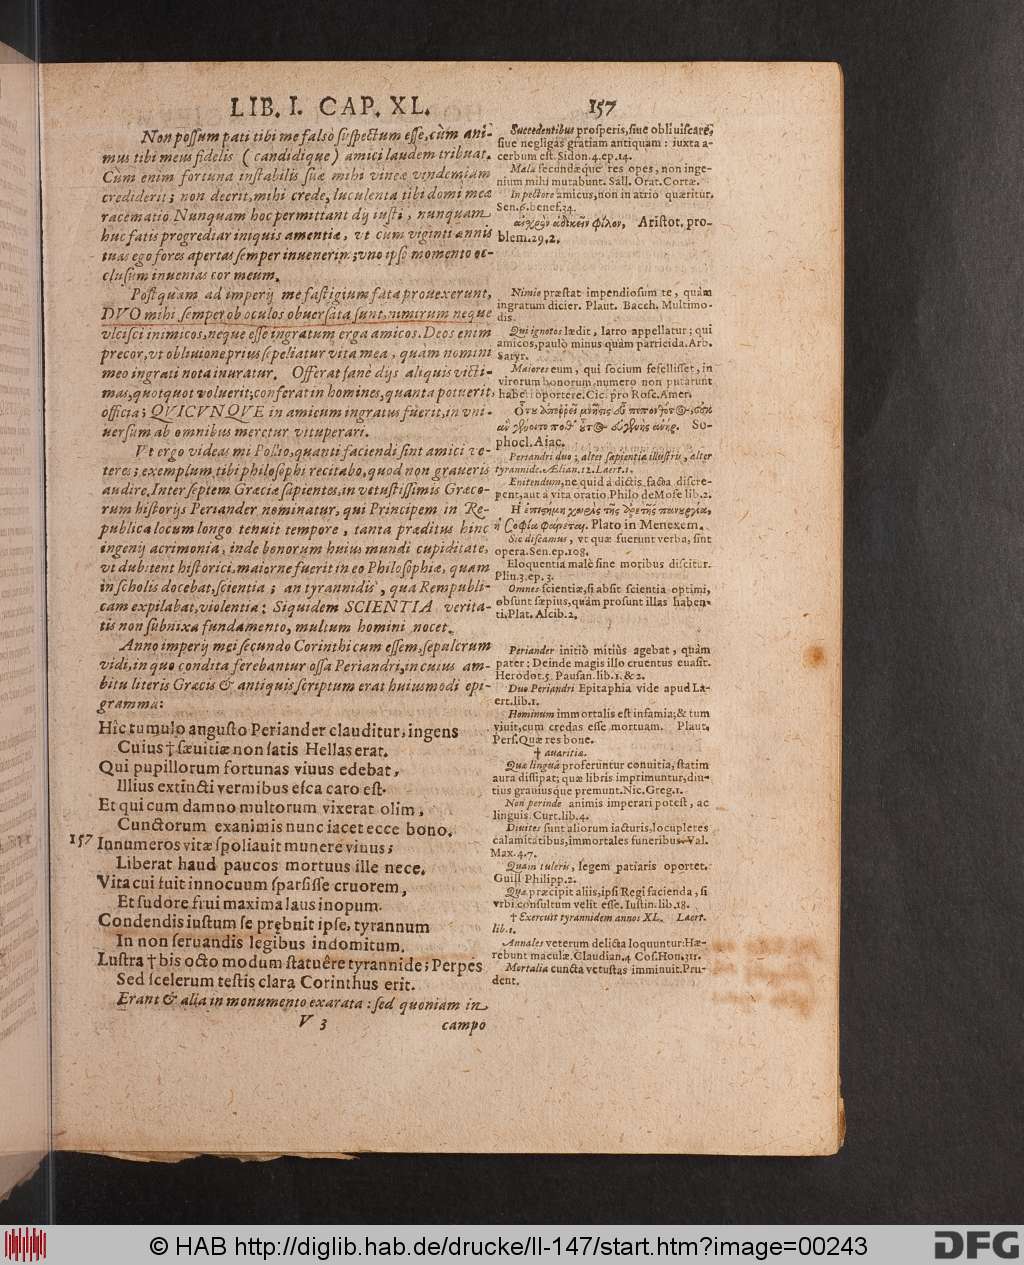 LIB. I. CAP. XL. 157
Non possum pati tibi me falsò suspectum esse, cùm ani-
mus tibi meus fidelis (candidique) amici laudem tribuat.
Cùm enim fortuna instabilis suæ mihi vineæ vindemiam
crediderit; non deerit, mihi crede, luculenta tibi domi meæ
racematio. Nunquam hoc permittant dij iusti, nunquam
huc fatis progrediar iniquis amentiæ, vt cum viginti annis
tuas ego fores apertas semper inuenerim; vno ipso momento oc-
clusum inuenias cor meum.
Postquam ad imperij me fastigium fata prouexerunt,
DVO mihi semper ob oculos obuersata sunt, nimirum neque
vlcisci inimicos, neque esse ingratum erga amicos. Deos enim
precor, vt obliuione prius sepeliatur vita mea, quam nomini
meo ingrati nota inuratur. Offerat sanè dijs aliquis victi-
mas, quotquot voluerit, conferat in homines, quanta potuerit,
officia; QVICVNQVE in amicum ingratus fuerit, in vni-
uersum ab omnibus meretur vituperari.
Vt ergo videas mi Pollio, quanti faciendi sint amici ve-
teres; exemplum tibi philosophi recitabo, quod non graueris
audire. Inter septem Græciæ sapientes, in vetustissimis Græco-
rum historijs Periander nominatur, qui Principem in Re-
publica locum longo tenuit tempore, tanta præditus hinc
ingenij acrimonia, inde bonorum huius mundi cupiditate,
vt dubitent historici, maiorne fuerit in eo Philosophiæ, quam
in scholis docebat, scientia; an tyrannidis, qua Rempubli-
cam expilabat, violentia: Siquidem SCIENTIA verita-
tis non subnixa fundamento, multum homini nocet.
Anno imperij mei secundo Corinthi cum essem, sepulcrum
vidi, in quo condita ferebantur ossa Periandri, in cuius am-
bitu literis Græcis & antiquis scriptum erat huiusmodi epi-
gramma:
Hic tumulo angusto Periander clauditur, ingens
Cuius † sæuitiæ non satis Hellas erat.
Qui pupillorum fortunas viuus edebat,
Illius extincti vermibus esca caro est.
Et qui cum damno multorum vixerat olim,
Cunctorum exanimis nunc iacet ecce bono.
157 Innumeros vitæ spoliauit munere viuus;
Liberat haud paucos mortuus ille nece.
Vita cui fuit innocuum sparsisse cruorem,
Et sudore frui maxima laus inopum.
Condendis iustum se prębuit ipse, tyrannum
In non seruandis legibus indomitum.
Lustra † bis octo modum statuêre tyrannidę; Perpes
Sed scelerum testis clara Corinthus erit.
Erant & alia in monumento exarata: sed quoniam in
V 3 campo
Succedentibus prosperis, siue obliuiscaris,
siue negligas gratiam antiquam: iuxta a-
cerbum est. Sidon. 4. ep. 14.
Mala secundæque res opes, non inge-
nium mihi mutabunt. Sall. Orat. Cottæ.
In pectore amicus, non in atrio quæritur.
Sen. 6. benef. 34.
αἰσχρὸν ἀδικεῖν φίλον. Aristot. pro-
blem. 29. 2.
Nimio præstat impendiosum te, quàm
ingratum dicier. Plaut. Bacch. Multimo-
dis.
Qui ignotos lædit, latro appellatur; qui
amicos, paulò minus quàm parricida. Arb.
Satyr.
Maiores eum, qui socium fefellisset, in
virorum bonorum numero non putarunt
haberi oportere. Cic. pro Rosc. Amer.
So-
phocl. Aiac.
Periandri duo; alter sapientia illustris, alter
tyrannide. Ælian. 12. Laert. 1.
Enitendum, ne quid à dictis facta discre-
pent, aut à vita oratio. Philo de Mose lib. 2.
Η ἐπιστήμη χωρὶς τῆς ἀρετῆς πανουργία,
ἢ σοφία φαίνεται. Plato in Menexem.
Sic discamus, vt quæ fuerunt verba, sint
opera. Sen. ep. 108.
Eloquentia malè sine moribus discitur.
Plin. 3. ep. 3.
Omnes scientiæ, si absit scientia optimi,
obsunt sæpius, quàm prosunt illas haben-
ti, Plat. Alcib. 2.
Periander initiò mitiùs agebat, quàm
pater: Deinde magis illo cruentus euasit.
Herodot. 5. Pausan. lib. 1. & 2.
Duo Periandri Epitaphia vide apud La-
ert. lib. 1.
Hominum immortalis est infamia; & tum
viuit, cum credas esse mortuam. Plaut.
Pers. Quæ res bone.
† auaritiæ.
Quæ linguâ proferuntur conuitia, statim
aura dissipat; quæ libris imprimuntur, diu-
tius grauiusque premunt. Nic. Greg. 1.
Non perinde animis imperari potest, ac
linguis. Curt. lib. 4.
Diuites sunt aliorum iacturis, locupletes
calamitatibus, immortales funeribus. Val.
Max. 4. 7.
Quam tuleris, legem patiaris oportet.
Guill. Philipp. 2.
Quæ præcipit aliis, ipsi Regi facienda, si
vrbi consultum velit esse. Iustin. lib. 18.
† Exercuit tyrannidem annos XL. Laert.
lib. 1.
Annales veterum delicta loquuntur: Hæ-
rebunt maculæ. Claudian. 4 Cos. Hon. 311.
Mortalia cuncta vetustas imminuit. Pru-
dent.
© HAB http://diglib.hab.de/drucke/li-147/start.htm?image=00243
DFG